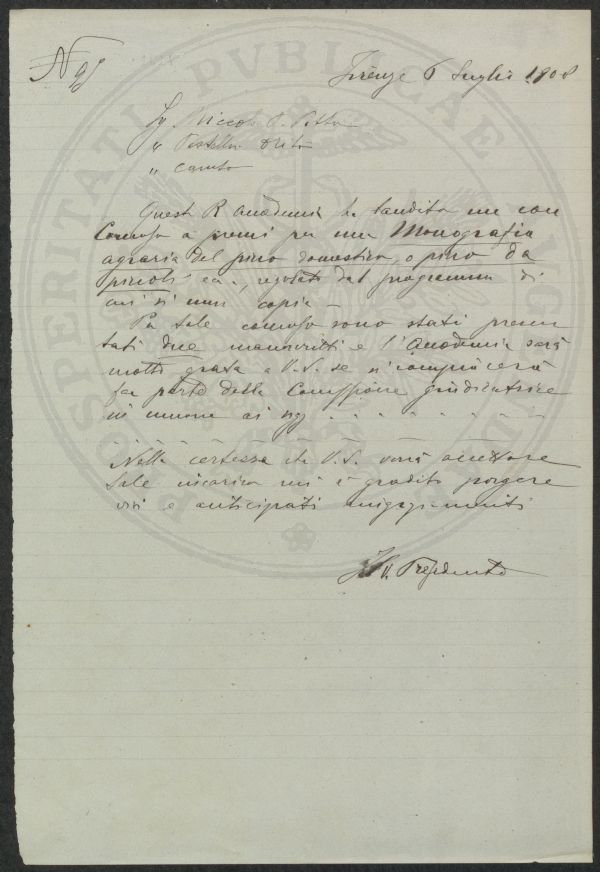 N 98
Firenze 6 Luglio 1908
Sig. Niccolò
"
" Caruso
Questa R. Accademia ha bandito un con
Concorso a premi per una Monografia
agraria del pino domestico, o pino da
pinoli ecc., regolato dal programma di
cui si unisce copia –
Per tale concorso sono stati presen
tati due manoscritti e l'Accademia sarà
molto grata a V.S. se si compiacerà
far parte della Commissione giudicatrice
in unione ai sigg. . . . . . .
Nella certezza che V.S. vorrà accettare
tale incarico mi è gradito porgere
vivi e anticipati ringraziamenti
Il V. Presidente
PROSPERITATI PVBLICAE AVGENDAE